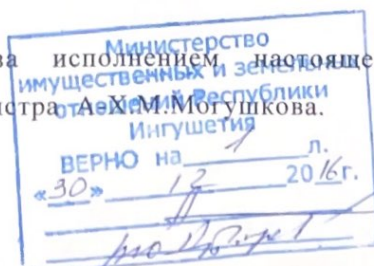 за исполнением настояще
истра А.Х.М.Могушкова.
Министерство
имущественных и земельных
отношений Республики
Ингушетия
ВЕРНО на 1 л.
«30» 12 2016г.